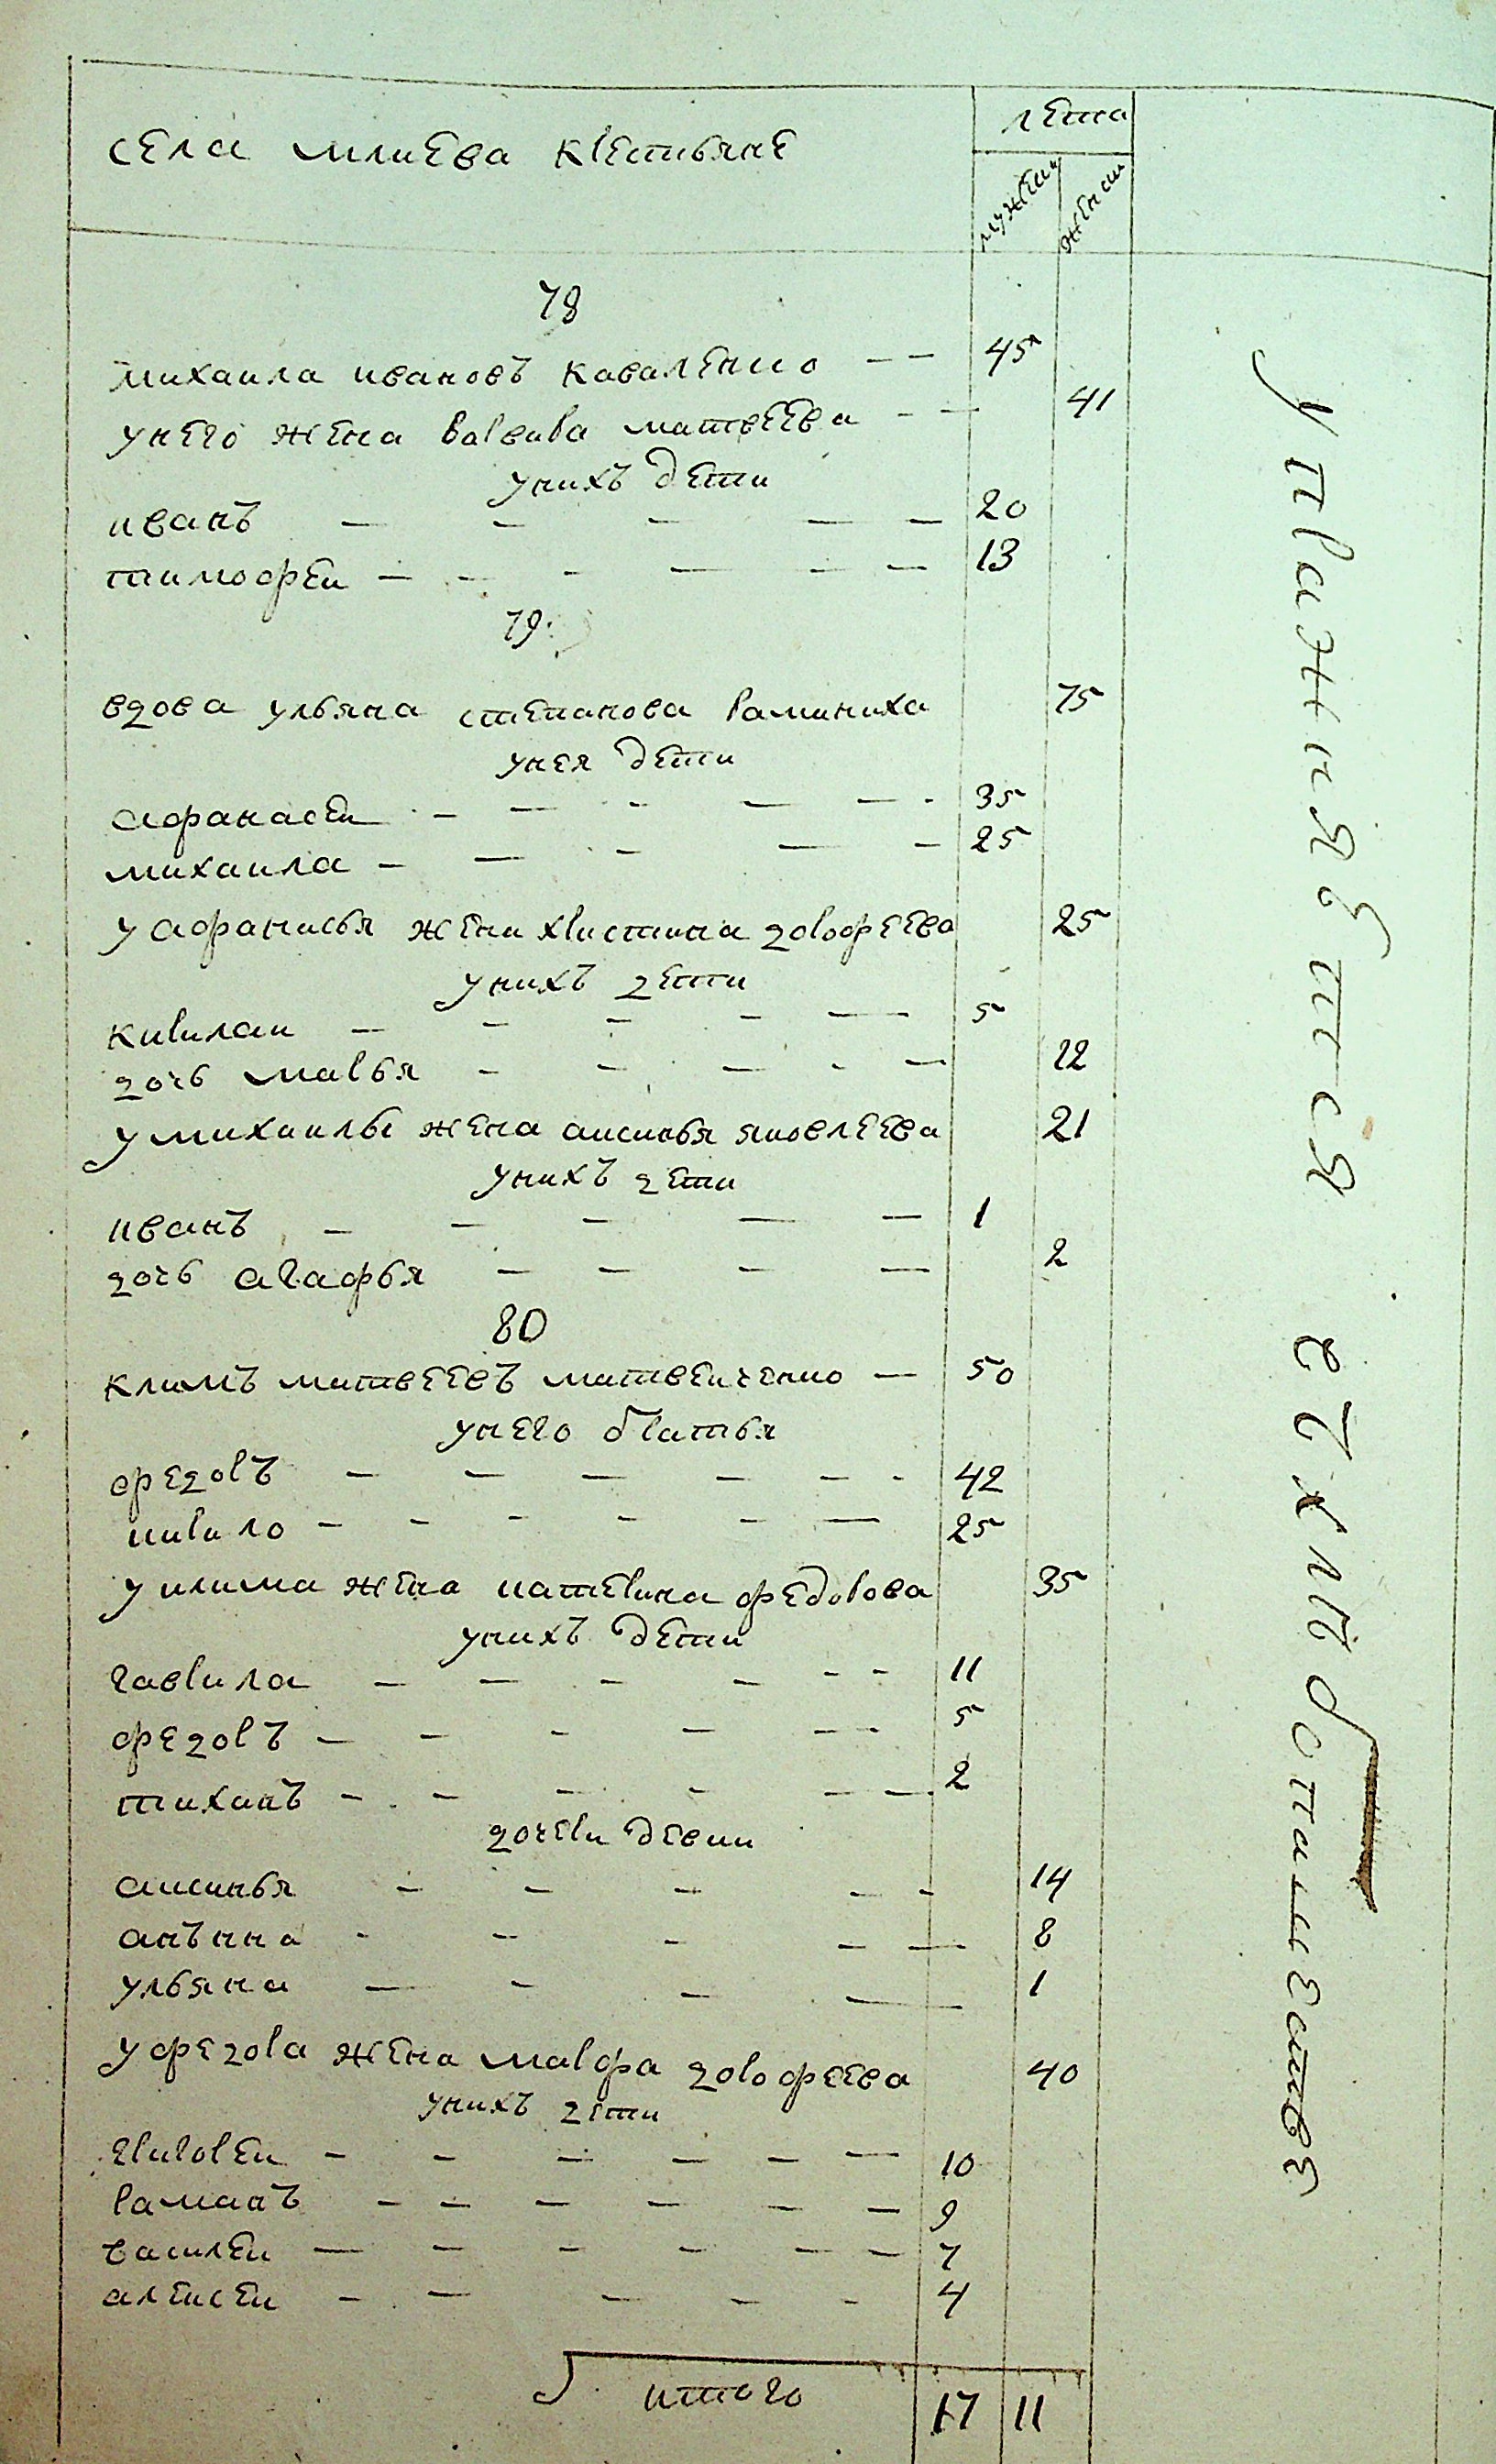 села млиева крестьяне
лета
мужеск
женск
78
михаила ивановъ каваленко — — 45
унего жена варвара матвеева — — 41
унихъ дети
иванъ — — — — — 20
тимофеи — — — — — — 13
79
вдова ульяна степанова раминиха 75
унея дети
афанасеи — — — — — - 35
михаила — — — — — 25
у афанасья жена христина дорофеева 25
унихъ дети
кирилаи — — — — — 5
дочь марья — — — — — 12
у михаилы жена аксинья яковлеева 21
унихъ дети
иванъ — — — — — 1
дочь агафья — — — — 2
80
климъ матвеевъ матвеиченко — 50
унего братья
федоръ — — — — — - 42
кирило — — — — — — 25
у клима жена катерина федорова 35
унихъ дети
гаврила — — — — - - 11
федоръ — — — — — 5
тиханъ — — — — — 2
дочери девки
аксинья — — — — - 14
анънна - — — — — 8
ульяна — — — — 1
у федора жена марфа дорофеева 40
унихъ дети
григореи — — — — — — 10
раманъ — — — — — — 9
василеи — — — — — — 7
алексеи — — — — - 4
итого 17 11
упражняются
в хлебопашестве